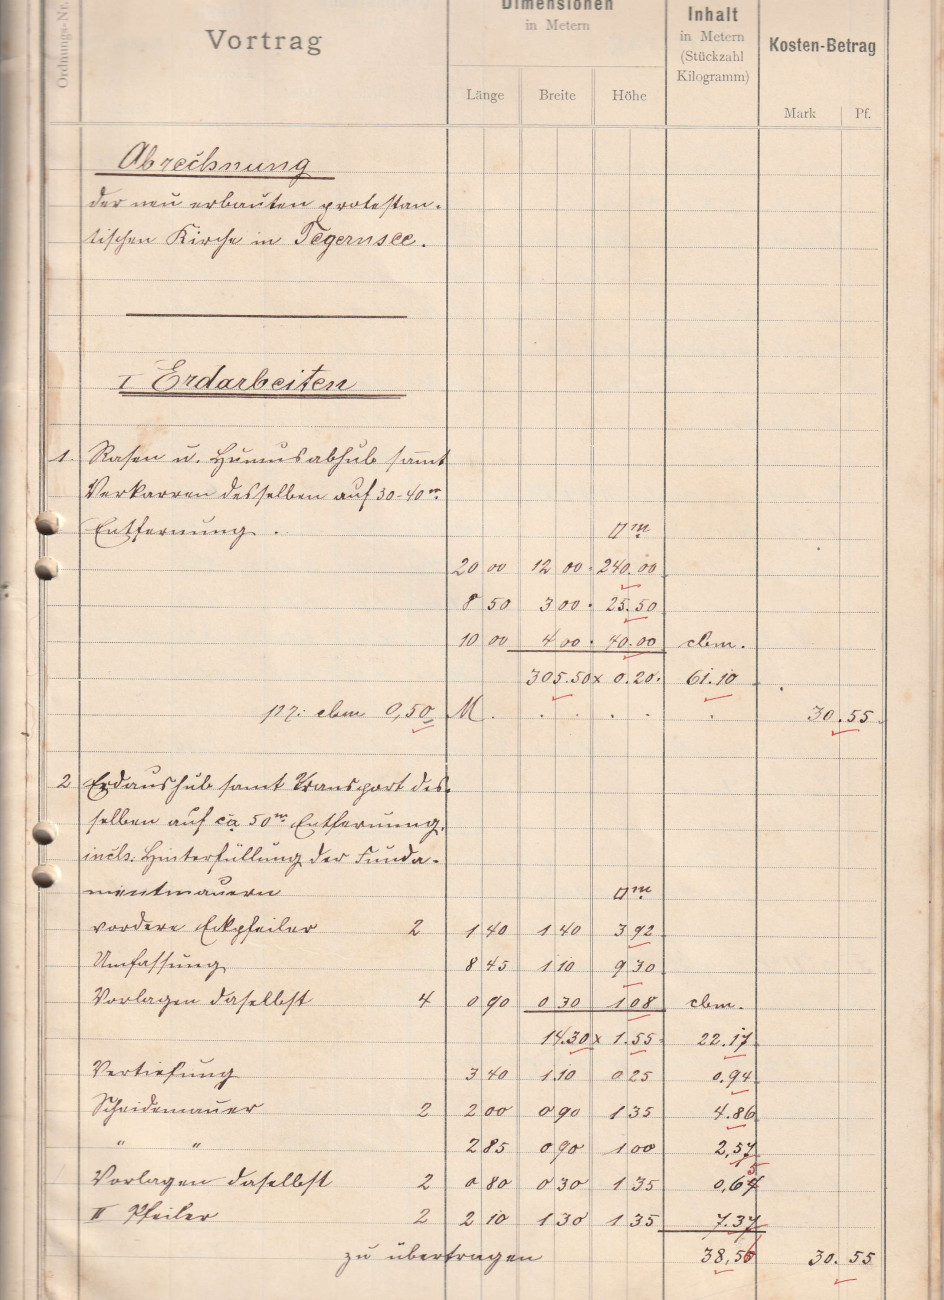 Ordnungs-Nr.
Vortrag
Dimensionen
in Metern
Länge Breite Höhe
Inhalt
in Metern
(Stückzahl
Kilogramm)
Kosten-Betrag
Mark Pf.
Abrechnung
der neu erbauten protestan-
tischen Kirche in Tegernsee.
I Erdarbeiten
1. Rasen u. Humusabhub samt
Verkarren desselben auf 30-40 m
Entfernung. □m
20 00 12 00 240.00
8 50 3 00 25.50
10 00 4 00 40.00 cbm.
305.50 x 0.20 61.10
pr: cbm 0,50 M. 30.55
2 Erdaushub samt Transport des-
selben auf ca 50 m Entfernung.
incls. Hinterfüllung der Funda-
mentmauern □m
vordere Eckpfeiler 2 1 40 1 40 3 92
Umfassung 8 45 1 10 9 30
Vorlagen daselbst 4 0 90 0 30 1 08 cbm.
14.30 x 1.55 22.17
Vertiefung 3 40 1 10 0 25 0.94
Scheidemauer 2 2 00 0 90 1 35 4.86
" " 2 85 0 90 1 00 2,57
Vorlagen daselbst 2 0 80 0 30 1 35 0,65
II Pfeiler 2 2 10 1 30 1 35 7.37
zu übertragen 38,56 30.55